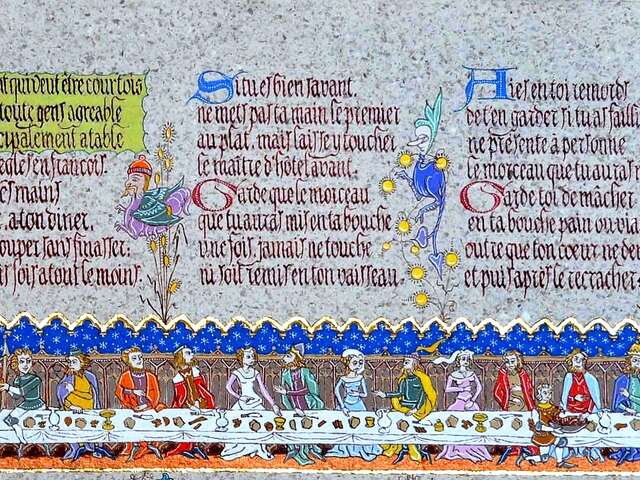 qui veut être courtois
toute gens agreable
cipalement a table
regles en françois.
ses mains
a ton diner.
souper sans finasser:
sois a tout le moins.
Si tu es bien savant.
ne mets pas ta main le premier
au plat, mais laisse y toucher
le maître d'hôtel avant.
Garde que le morceau
que tu auras mis en ta bouche
une fois, jamais ne touche
ni soit remis en ton vaisseau.
Aies en toi remords
de t'en garder si tu as failli
ne présente à personne
le morceau que tu auras
Garde toi de mâcher
en ta bouche pain ou
outre que ton coeur ne
et puis après le recracher